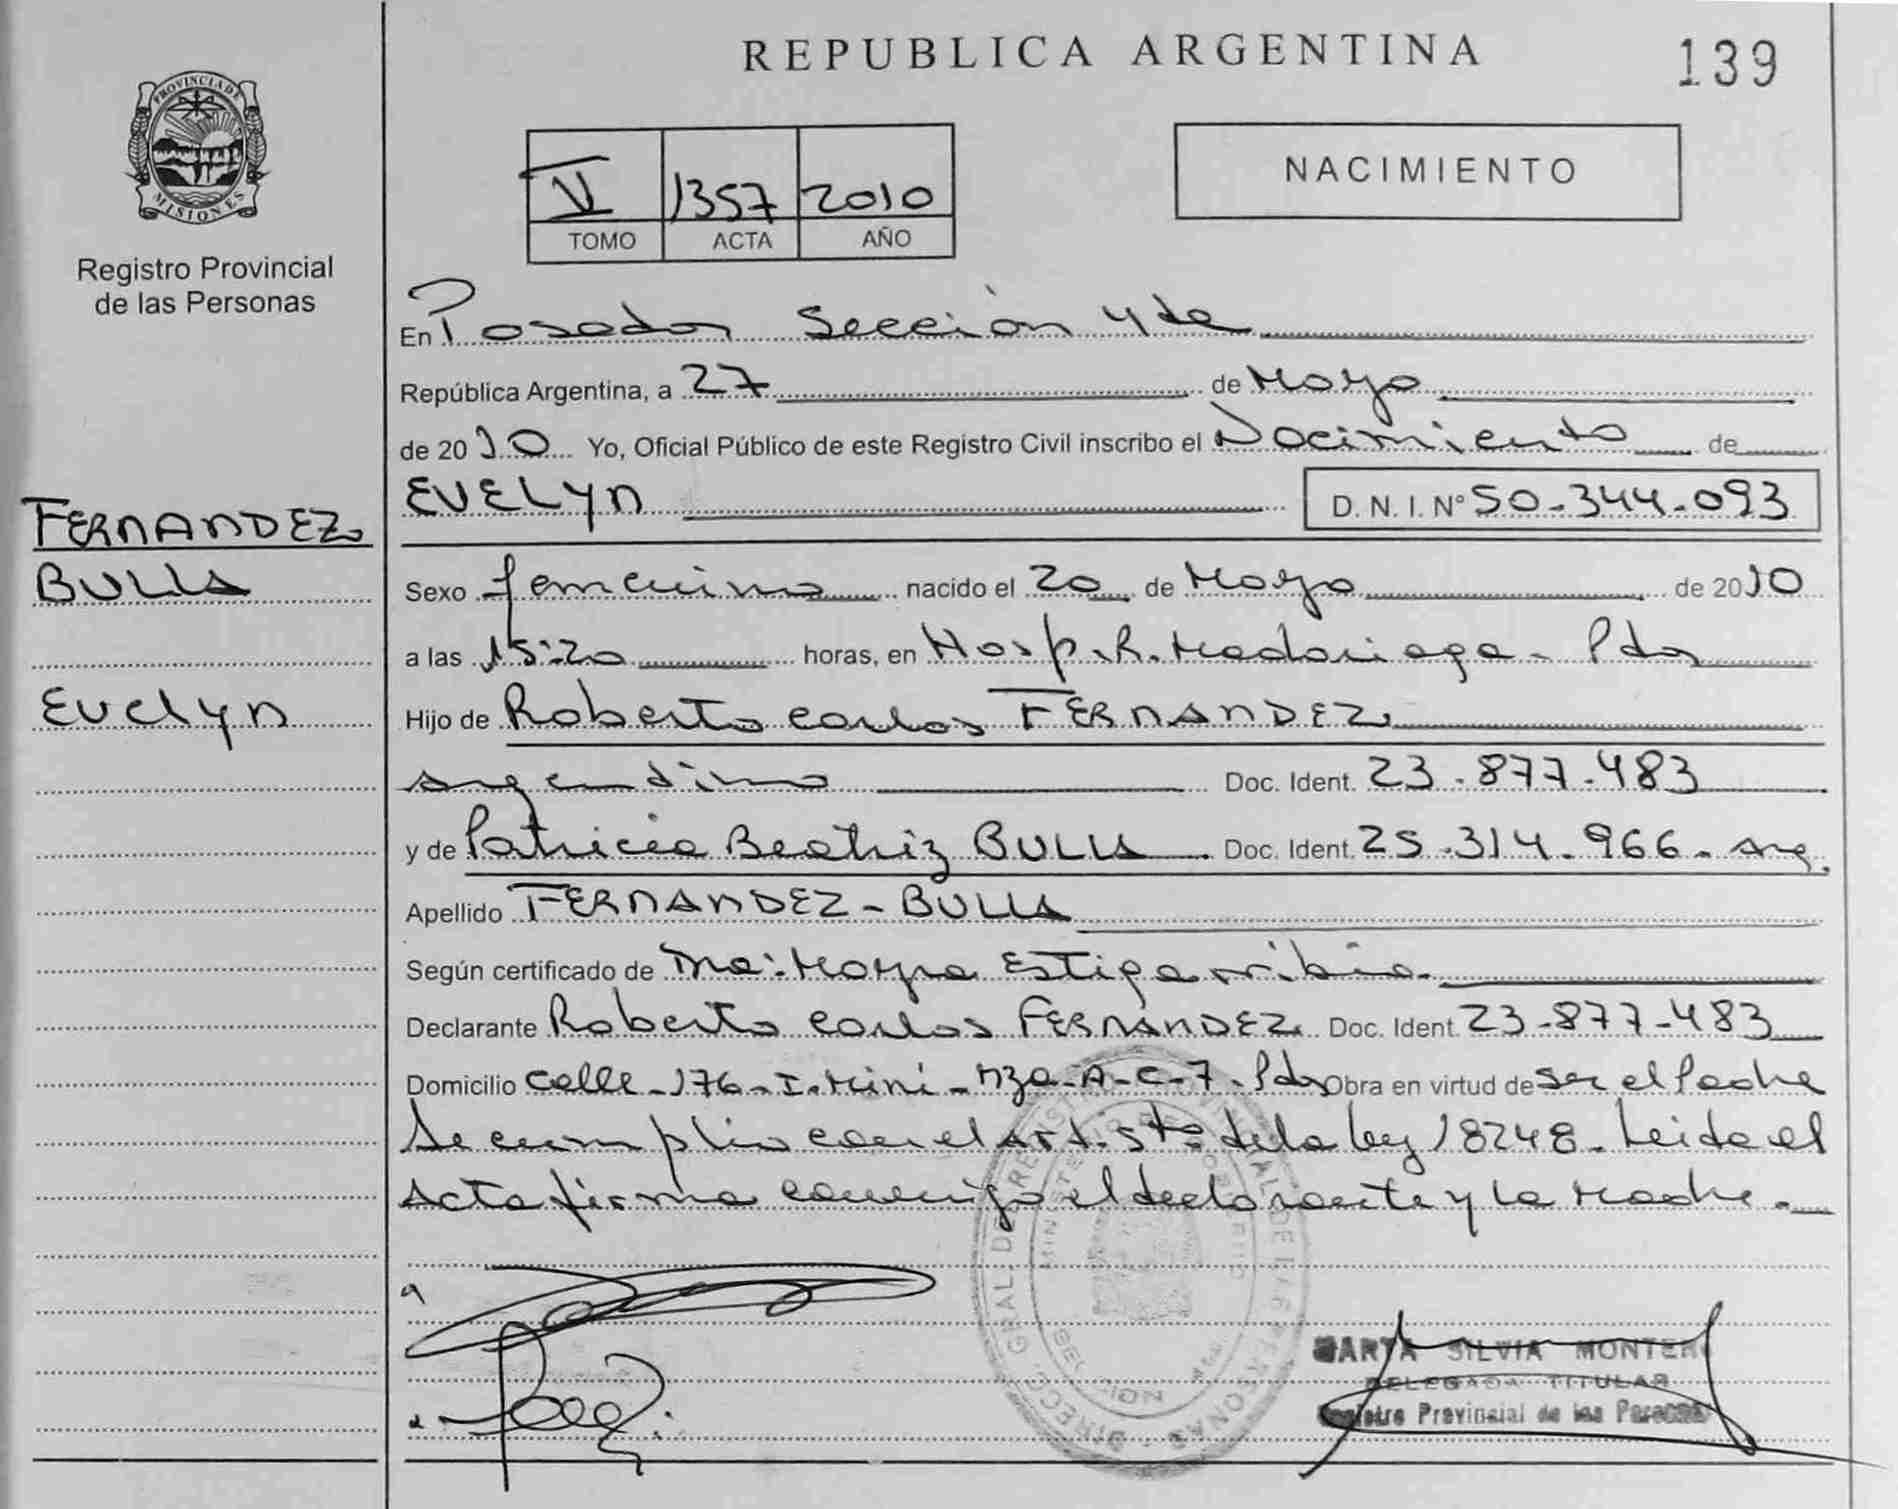 REPUBLICA ARGENTINA
139
PROVINCIA DE
MISIONES
Registro Provincial
de las Personas
V 1357 2010
TOMO ACTA AÑO
NACIMIENTO
En Posadas Sección 4ta
República Argentina, a 27 de Mayo
de 2010 Yo, Oficial Público de este Registro Civil inscribo el Nacimiento de
EVELYN D. N. I. Nº 50.344.093
FERNANDEZ
BULLA
Evelyn
Sexo femenino nacido el 20 de Mayo de 2010
a las 15:20 horas, en Hosp. R. Madariaga - Pdas
Hijo de Roberto Carlos FERNANDEZ
argentino Doc. Ident. 23.877.483
y de Patricia Beatriz BULLA Doc. Ident. 25.314.966 - arg.
Apellido FERNANDEZ - BULLA
Según certificado de Estigarribia
Declarante Roberto Carlos FERNANDEZ Doc. Ident. 23-877-483
Domicilio Calle - 176 - I. Miní - Mza - A - C - 7 - Pdas Obra en virtud de ser el Padre
Se cumplio con el Art. 5to de la ley 18248 - Leida el
Acta firma conmigo el declarante y la Madre.
MARTA SILVIA MONTERO
DELEGADA TITULAR
Registro Provincial de las Personas